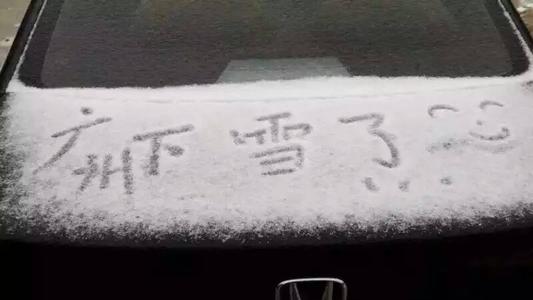 广州下雪了...